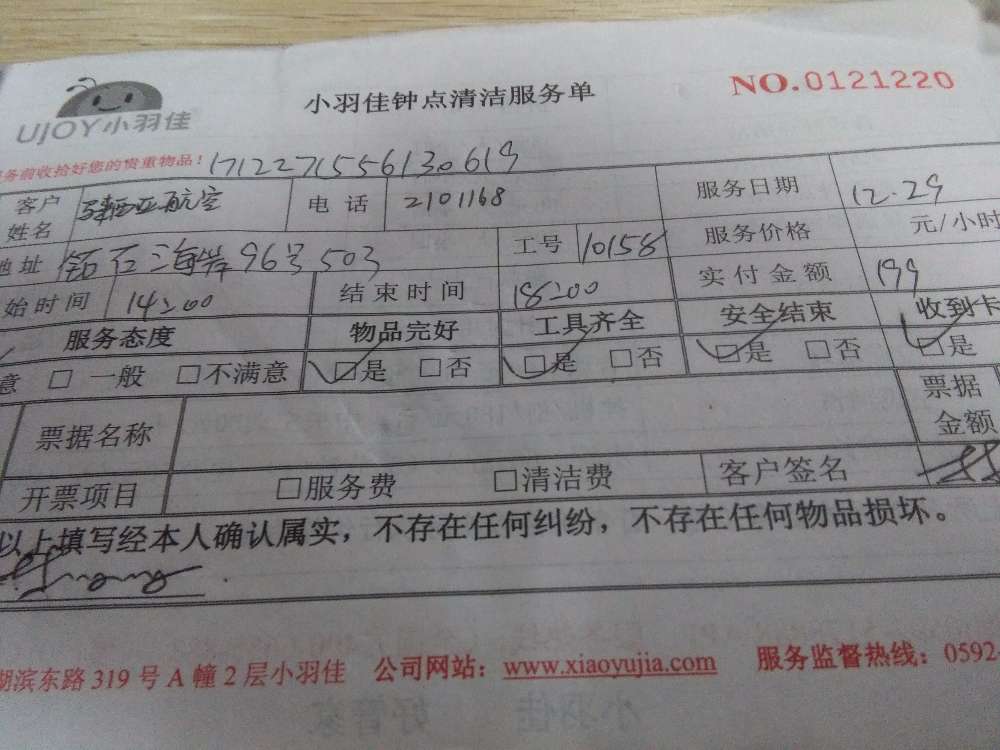 UJOY小羽佳 小羽佳钟点清洁服务单 NO.0121220
务前收拾好您的贵重物品! 1712271556130619
客户姓名 马来西亚航空 电话 2101168 服务日期 12.29
地址 钻石海岸96号503 工号 10158 服务价格 元/小时
始时间 14:00 结束时间 18:00 实付金额 199
服务态度 物品完好 工具齐全 安全结束 收到卡
意 □ 一般 □不满意 □是 □否 □是 □否 □是 □否 □是
票据名称 票据金额
开票项目 □服务费 □清洁费 客户签名
以上填写经本人确认属实，不存在任何纠纷，不存在任何物品损坏。
湖滨东路319号A幢2层小羽佳 公司网站：www.xiaoyujia.com 服务监督热线：0592-